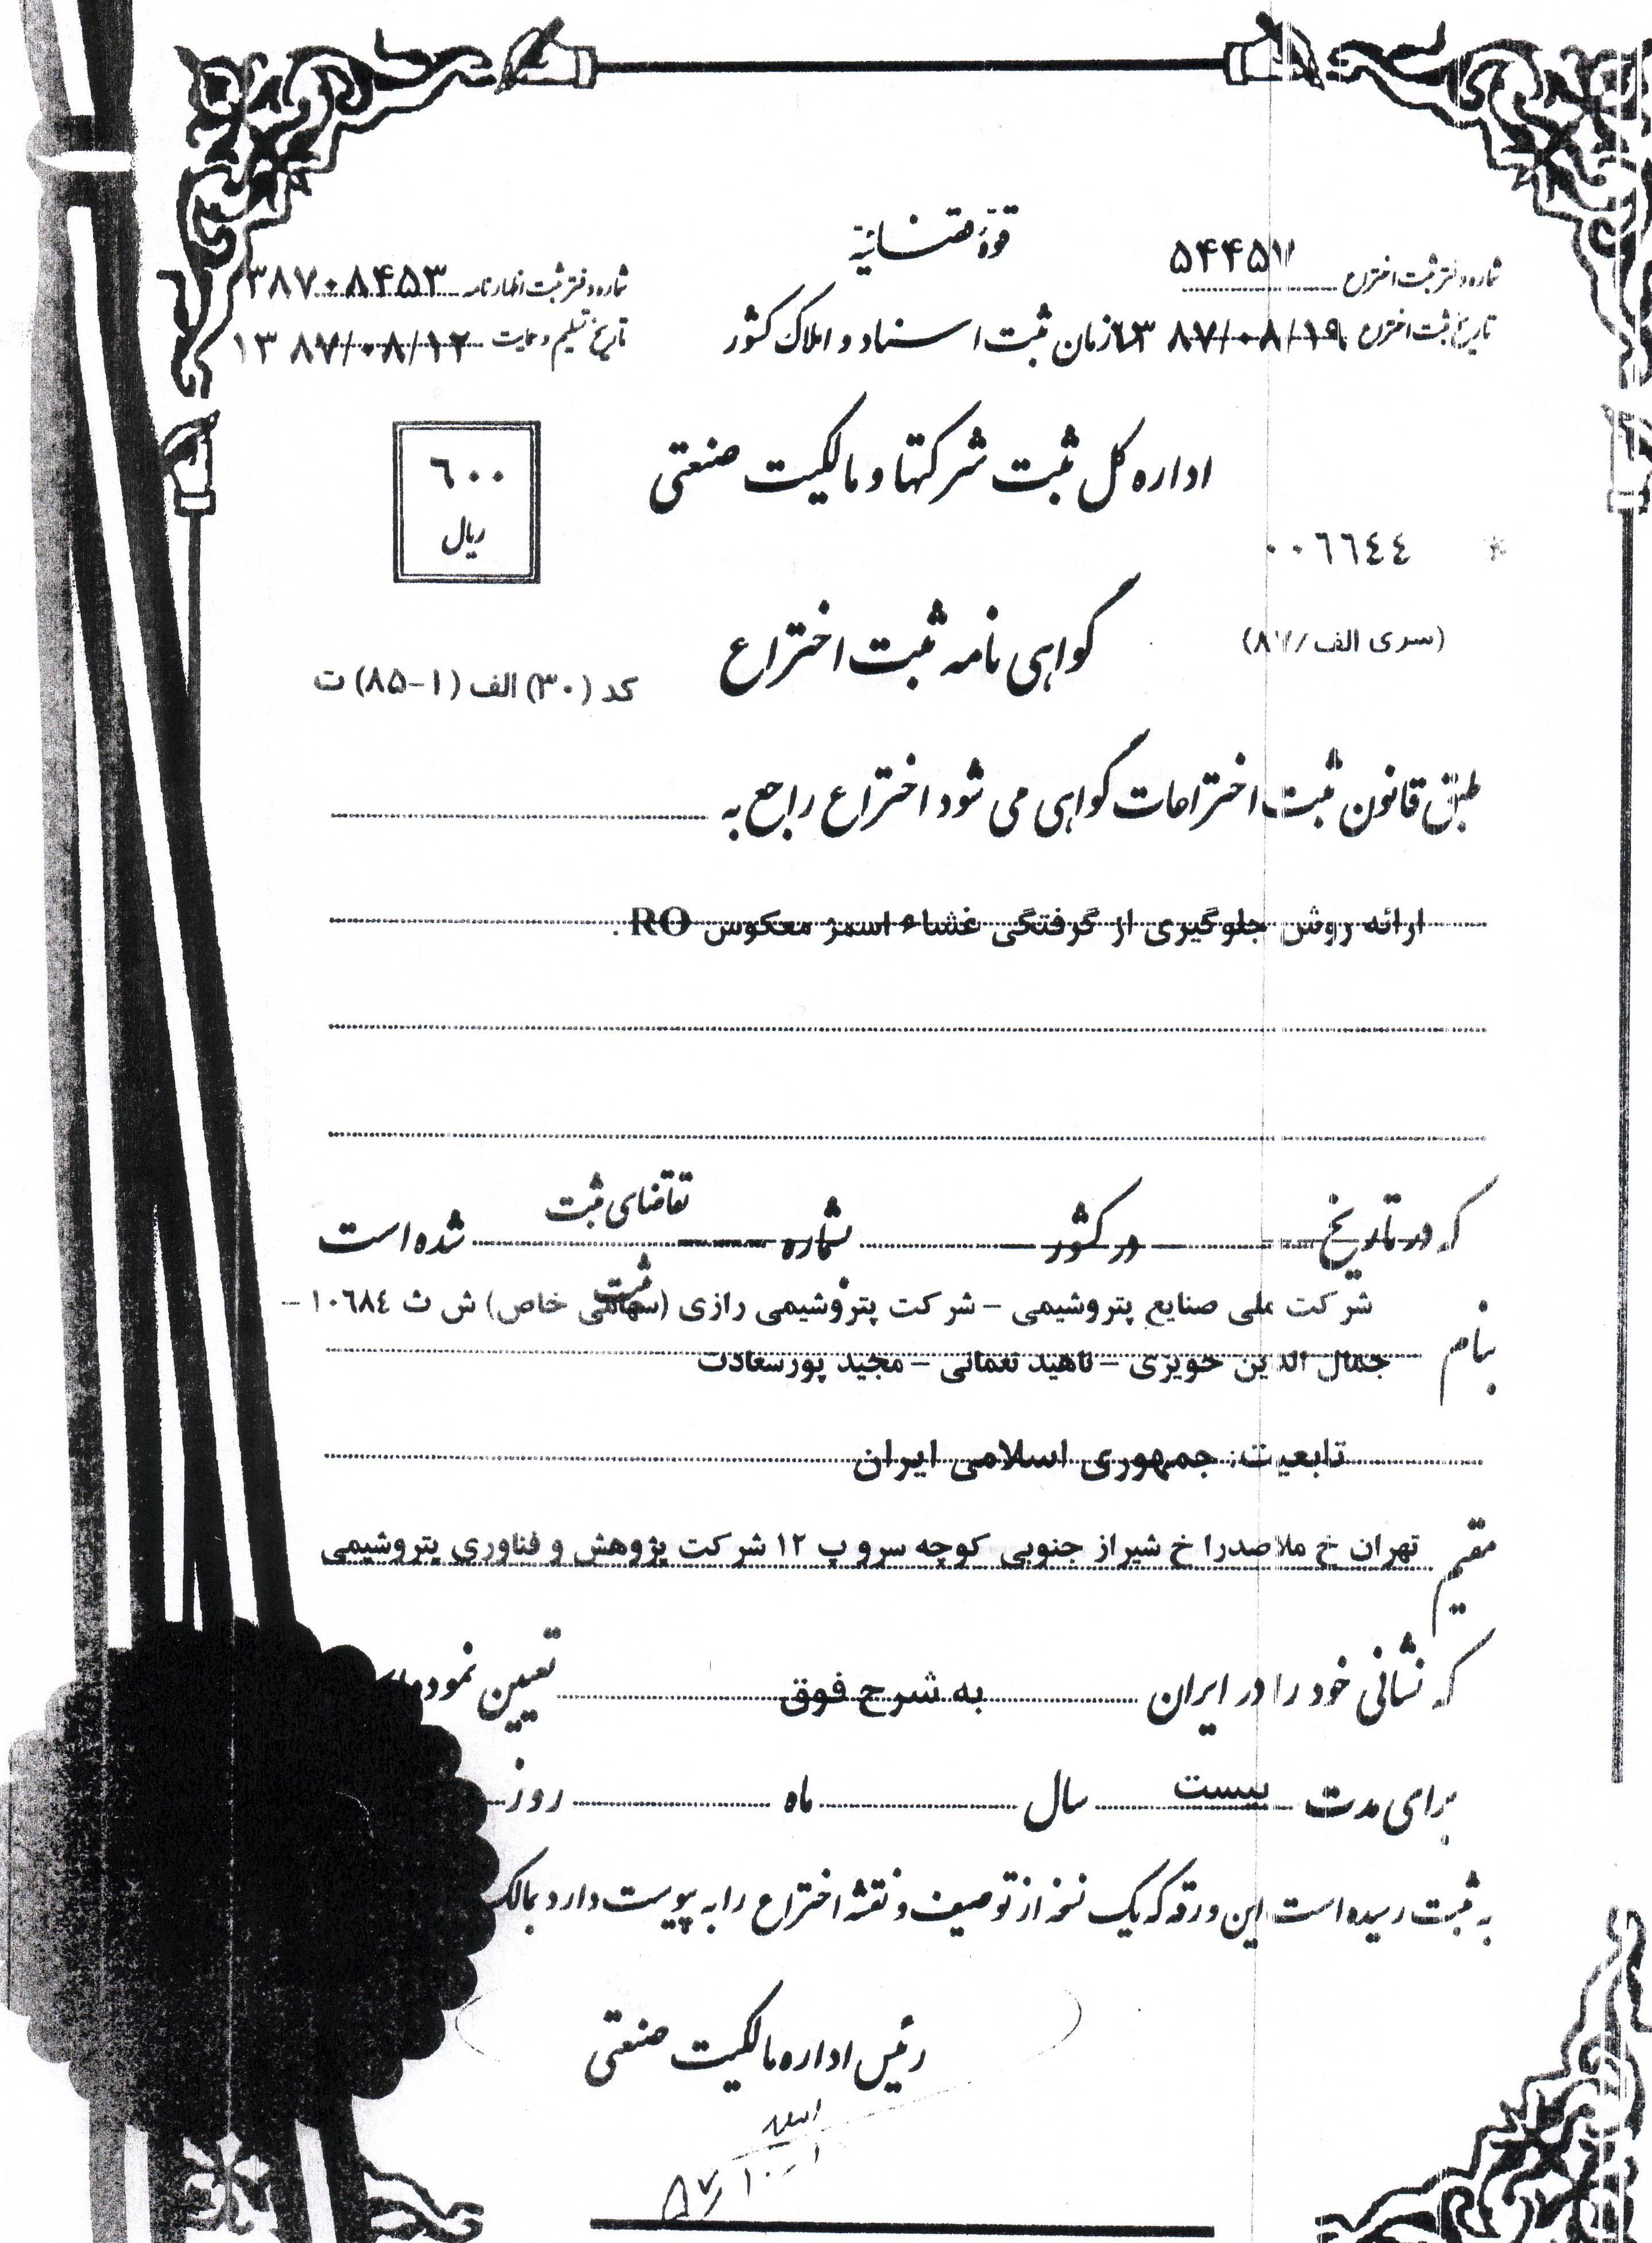 قوهٔ قضائیه
شماره دفتر ثبت اختراع ۵۴۴۵۷
شماره دفتر ثبت اظهارنامه ۳۸۷۰۸۴۵۳
تاریخ ثبت اختراع ۱۳۸۷/۰۸/۱۹
سازمان ثبت اسناد و املاک کشور
تاریخ تسلیم و حمایت ۱۳۸۷/۰۸/۱۲
اداره کل ثبت شرکتها و مالکیت صنعتی
٦٠٠
ریال
٠٠٦٦٤٤
گواهی نامه ثبت اختراع
(سری الف/۸۷)
کد (۳۰) الف (۱-۸۵) ت
طبق قانون ثبت اختراعات گواهی می شود اختراع راجع به
ارائه روش جلوگیری از گرفتگی غشاء اسمز معکوس RO .
که در تاریخ در کشور شماره تقاضای ثبت شده است
ثبت
شرکت ملی صنایع پتروشیمی - شرکت پتروشیمی رازی (سهامی خاص) ش ث ١٠٦٨٤ -
بنام جمال الدین حویزی - ناهید نعمانی - مجید پورسعادت
تابعیت: جمهوری اسلامی ایران
مقیم تهران خ ملاصدرا خ شیراز جنوبی کوچه سرو پ ۱۲ شرکت پژوهش و فناوری پتروشیمی
که نشانی خود را در ایران به شرح فوق تعیین نموده
برای مدت بیست سال ماه روز
به ثبت رسیده است این ورقه که یک نسخه از توصیف و نقشه اختراع را به پیوست دارد بمالک
رئیس اداره مالکیت صنعتی